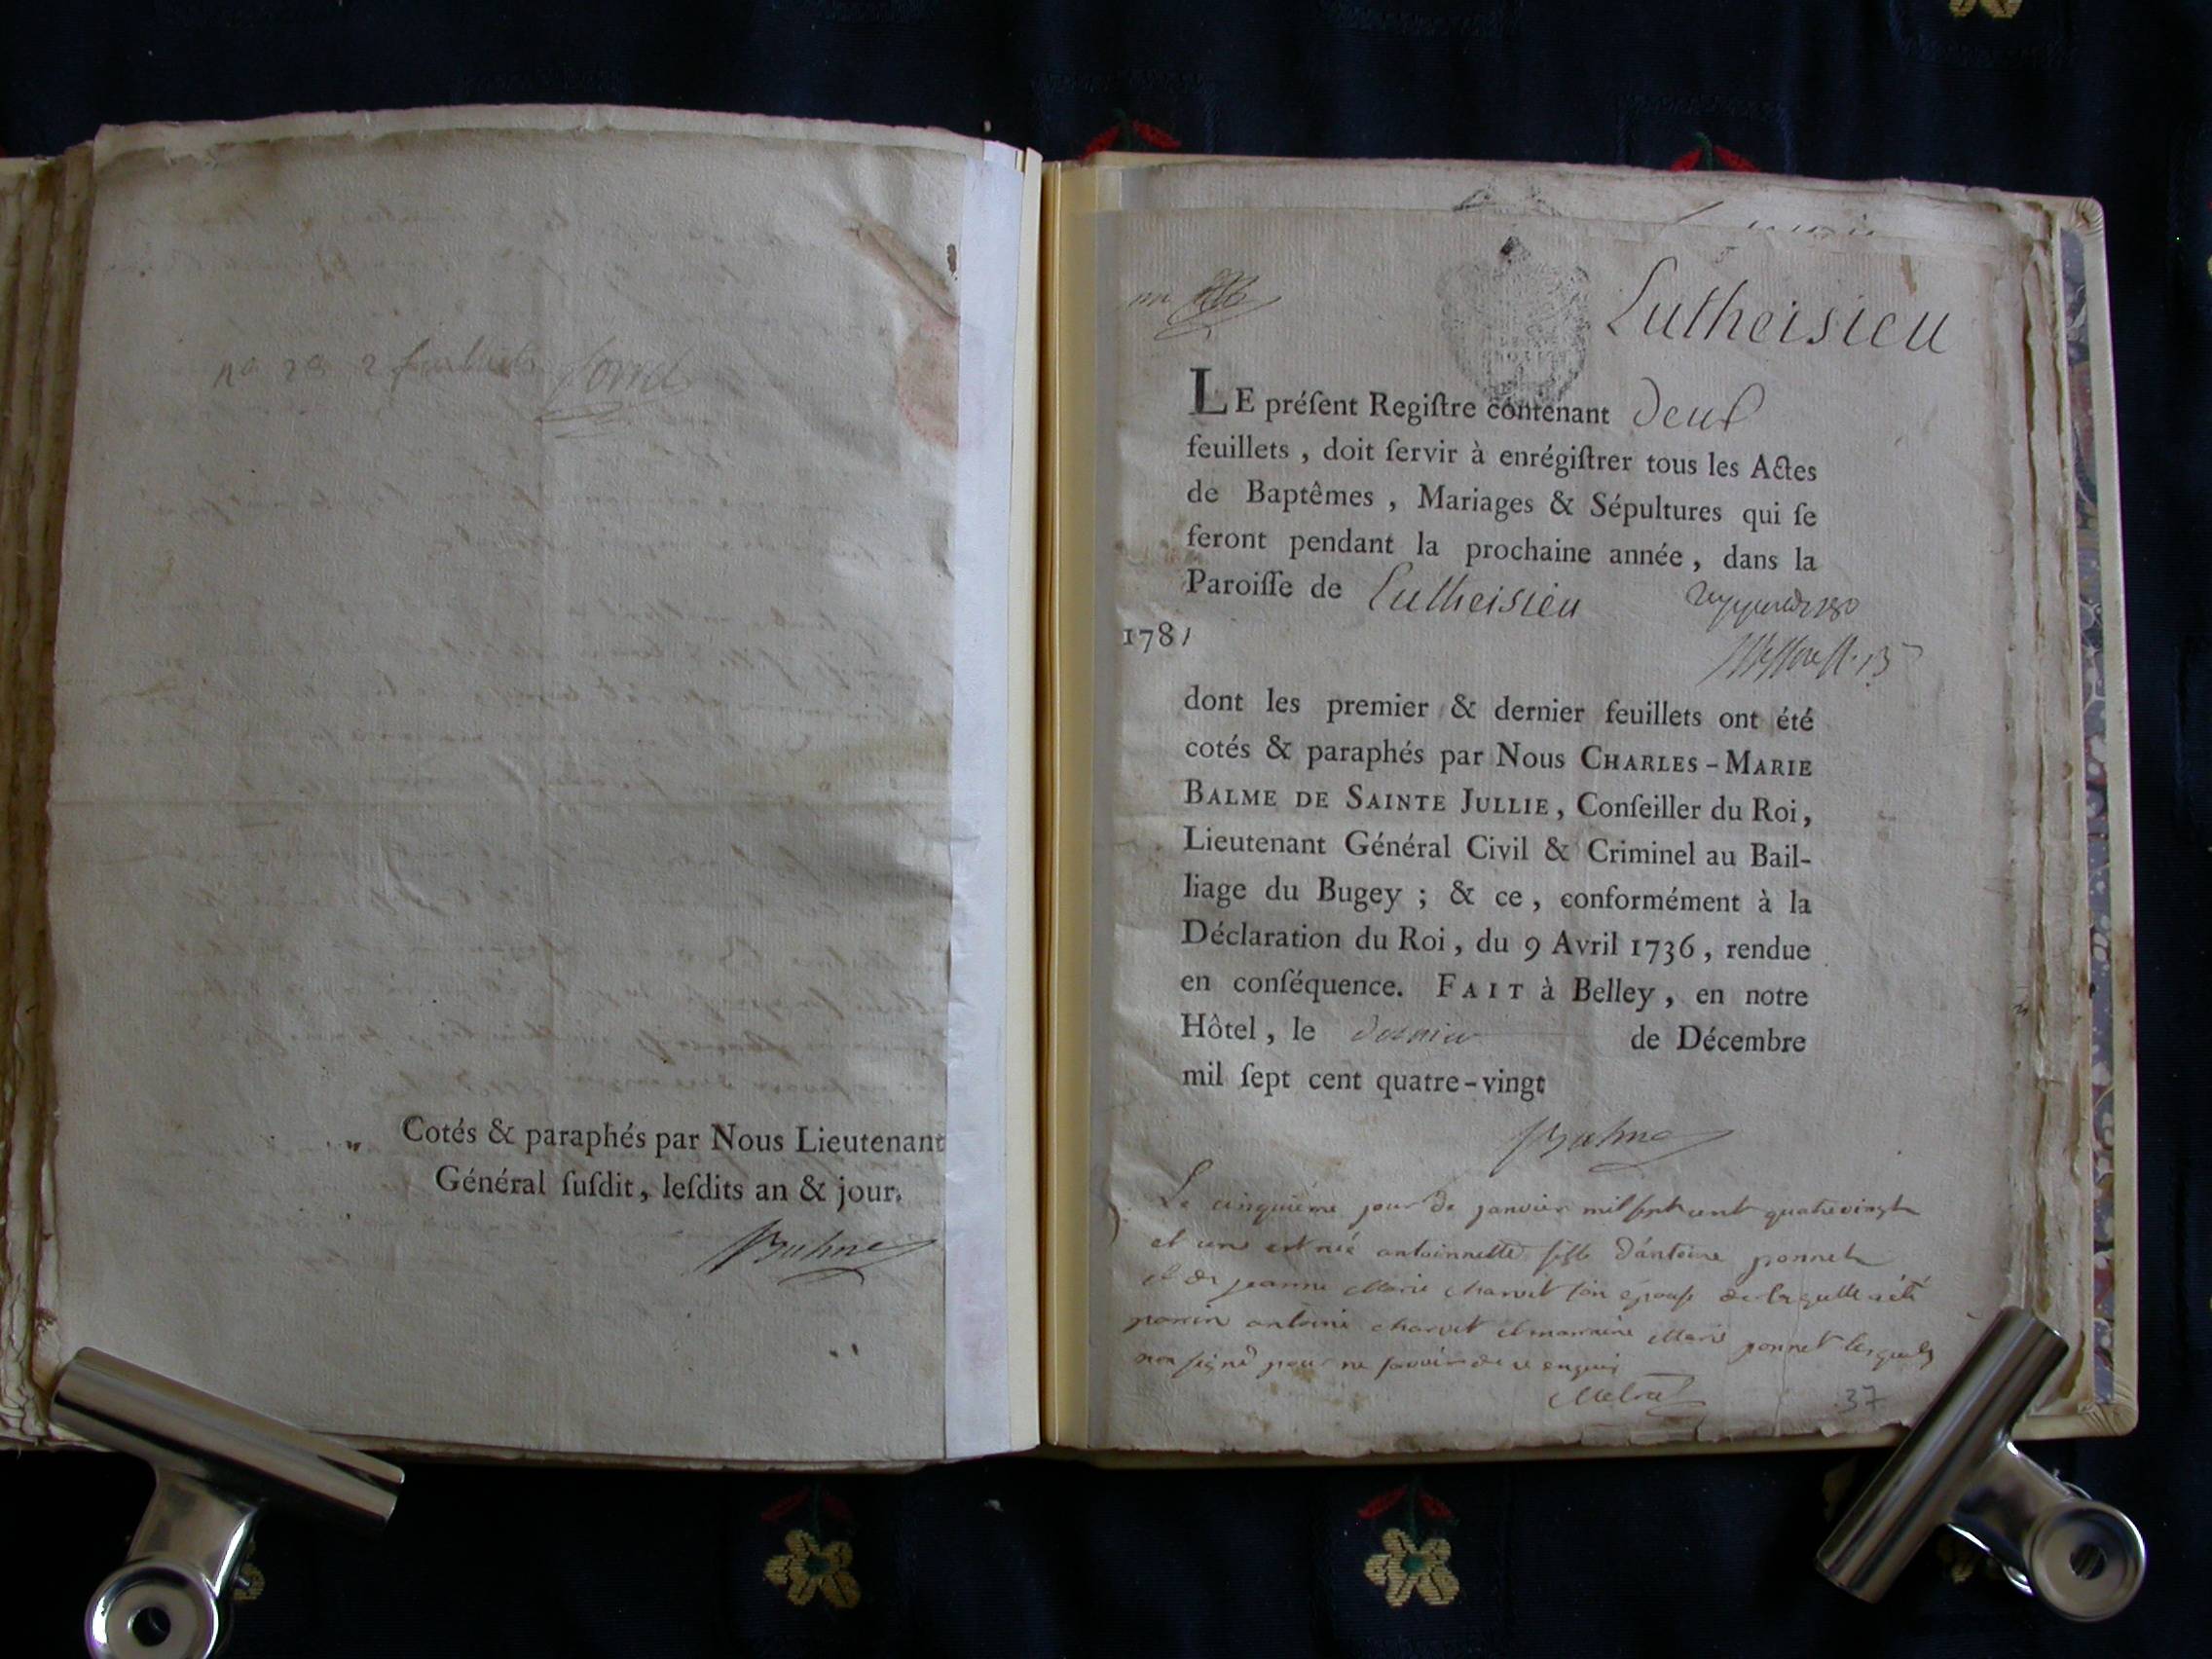 no 28 2 feuillets
Cotés & paraphés par Nous Lieutenant
Général ſuſdit, leſdits an & jour.
Balme
Lutheisieu
LE préſent Regiſtre contenant deux
feuillets, doit ſervir à enrégiſtrer tous les Actes
de Baptêmes, Mariages & Sépultures qui ſe
feront pendant la prochaine année, dans la
Paroiſſe de Lutheisieu
1781
dont les premier & dernier feuillets ont été
cotés & paraphés par Nous CHARLES-MARIE
BALME DE SAINTE JULLIE, Conſeiller du Roi,
Lieutenant Général Civil & Criminel au Bail-
liage du Bugey ; & ce, conformément à la
Déclaration du Roi, du 9 Avril 1736, rendue
en conſéquence. FAIT à Belley, en notre
Hôtel, le dernier de Décembre
mil ſept cent quatre-vingt
Balme
Le cinquiéme jour de janvier mil sept cent quatrevingt
et une est née antoinnette fille d'antoine ponnet
et de jeanne Marie charvet son epouse de laquelle a été
parrin antoine charvet et marraine Marie ponnet lesquels
non signé pour ne savoir de ce enquis
37